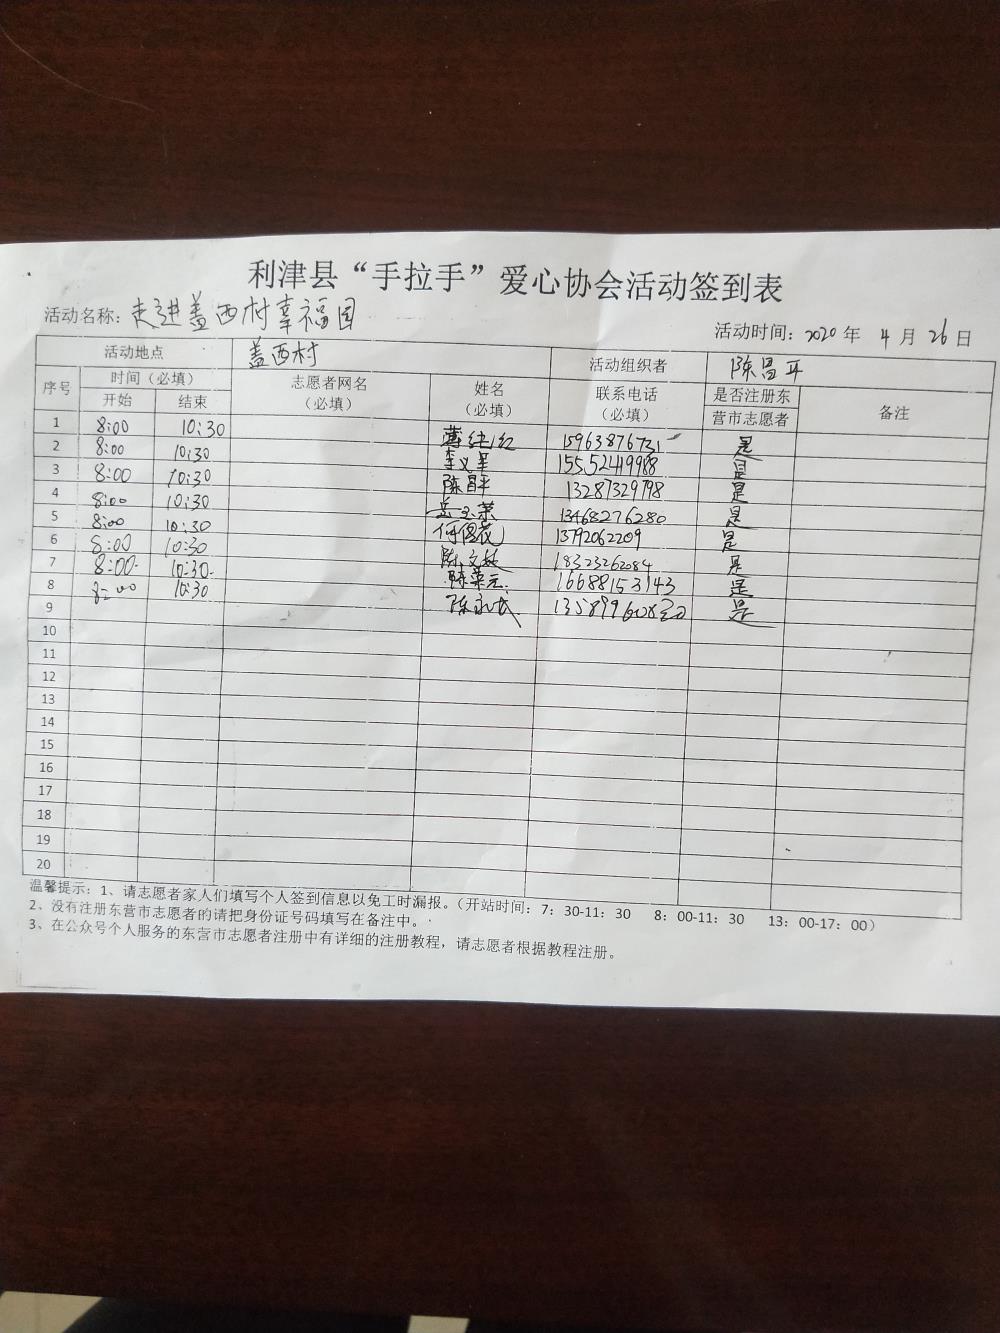 利津县“手拉手”爱心协会活动签到表
活动名称：走进盖西村幸福园 活动时间：2020年4月26日
活动地点 盖西村 活动组织者 陈昌平
序号 时间（必填） 志愿者网名（必填） 姓名（必填） 联系电话（必填） 是否注册东营市志愿者 备注
开始 结束
1 8:00 10:30 15963876731 是
2 8:00 10:30 李义军 15552419988 是
3 8:00 10:30 陈昌平 13287329798 是
4 8:00 10:30 13468276280 是
5 8:00 10:30 13792062209 是
6 8:00 10:30 18323262084 是
7 8:00 10:30 陈荣元 16688153143 是
8 8:00 10:30 是
9
10
11
12
13
14
15
16
17
18
19
20
温馨提示：1、请志愿者家人们填写个人签到信息以免工时漏报。（开站时间：7：30-11：30 8：00-11：30 13：00-17：00）
2、没有注册东营市志愿者的请把身份证号码填写在备注中。
3、在公众号个人服务的东营市志愿者注册中有详细的注册教程，请志愿者根据教程注册。